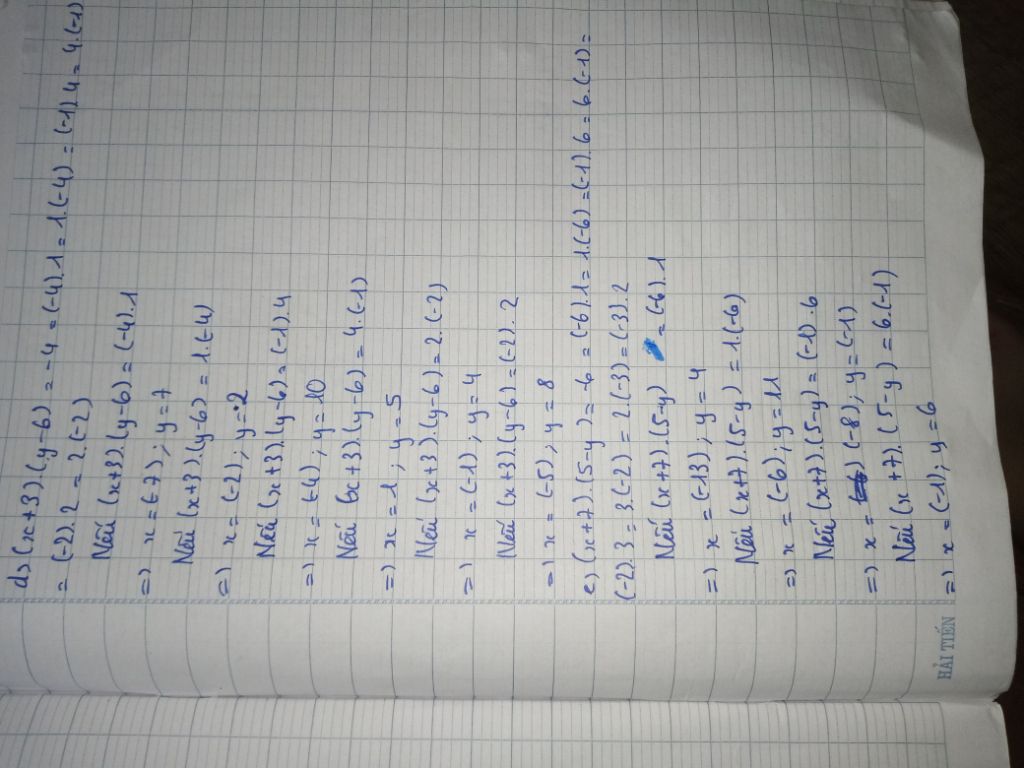 d) (x+3).(y-6) = -4 = (-4).1 = 1.(-4) = (-1).4 = 4.(-1)
= (-2).2 = 2.(-2)
Nếu (x+3).(y-6) = (-4).1
=> x = (-7); y = 7
Nếu (x+3).(y-6) = 1.(-4)
=> x = (-2); y = 2
Nếu (x+3).(y-6) = (-1).4
=> x = (-4); y = 10
Nếu (x+3).(y-6) = 4.(-1)
=> x = 1; y = 5
Nếu (x+3).(y-6) = 2.(-2)
=> x = (-1); y = 4
Nếu (x+3).(y-6) = (-2).2
=> x = (-5); y = 8
e) (x+7).(5-y) = -6 = (-6).1 = 1.(-6) = (-1).6 = 6.(-1) =
(-2).3 = 3.(-2) = 2.(-3) = (-3).2
Nếu (x+7).(5-y) = (-6).1
=> x = (-13); y = 4
Nếu (x+7).(5-y) = 1.(-6)
=> x = (-6); y = 11
Nếu (x+7).(5-y) = (-1).6
=> x = (-8); y = (-1)
Nếu (x+7).(5-y) = 6.(-1)
=> x = (-1); y = 6
HẢI TIẾN